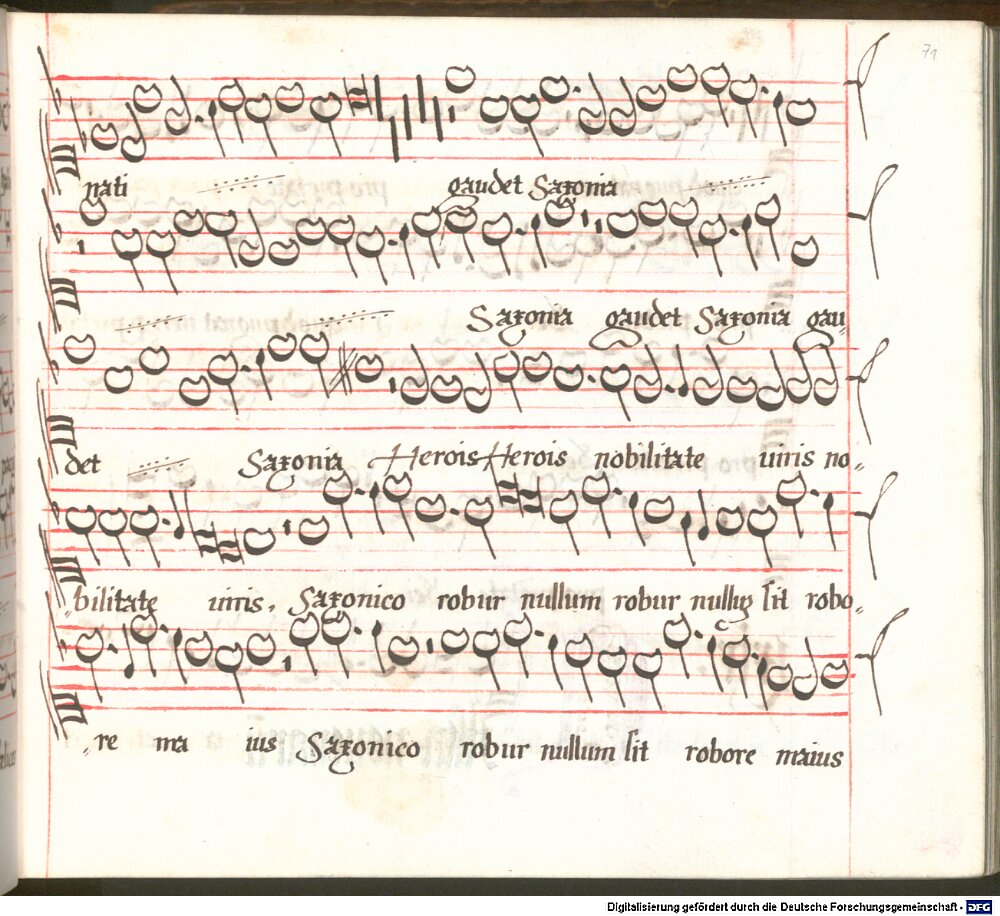 71
nati gaudet Saxonia
Saxonia gaudet Saxonia gau
det Saxonia Herois Herois nobilitate uiris no„
„bilitate uiris. Saxonico robur nullum robur nullũ sit robo„
„re ma ius Saxonico robur nullum sit robore maius
Digitalisierung gefördert durch die Deutsche Forschungsgemeinschaft - DFG